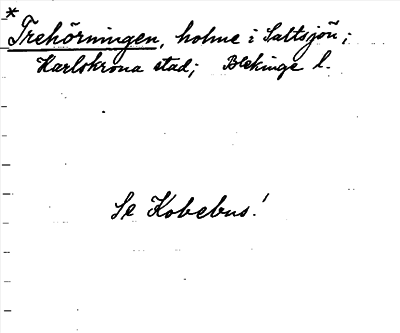 *
Trehörningen, holme i Saltsjön;
Karlskrona stad; Blekinge l.
Se Kobebus!